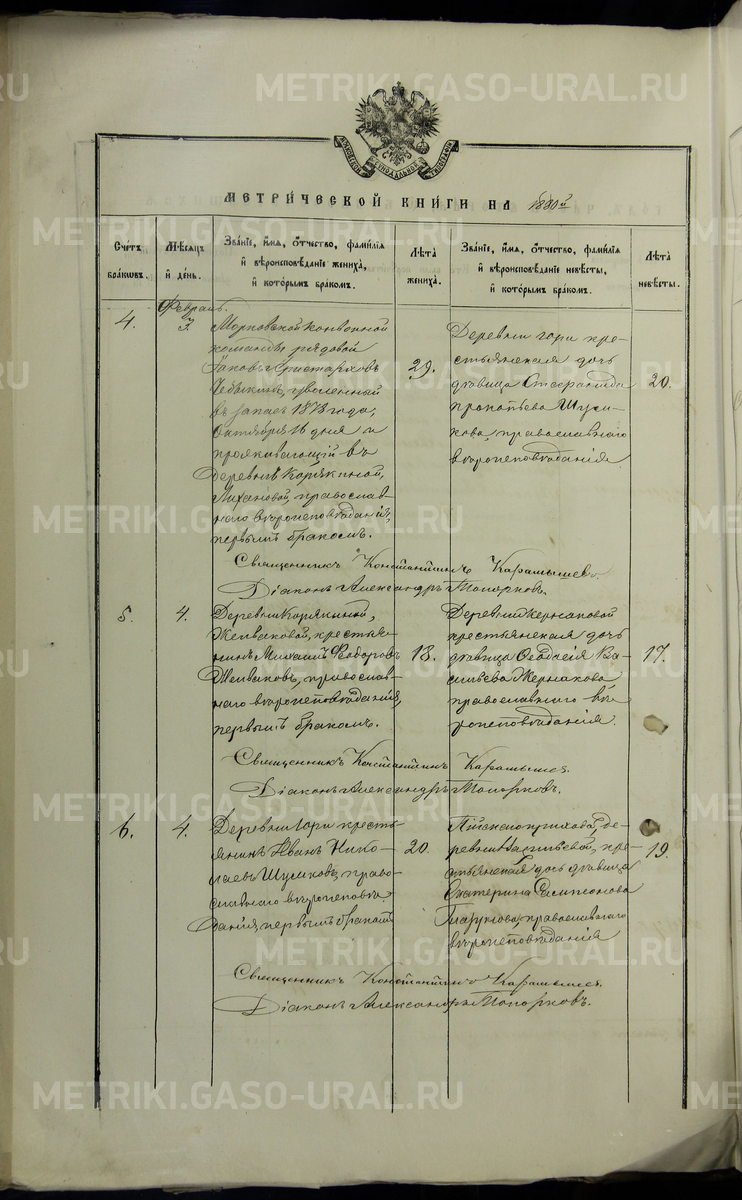 METRIKI.GASO-URAL.RU
МЕТРИ́ЧЕСКОЙ КНИ́ГИ НА 1880й
Сче́тъ бра́ковъ.
Мѣ́сяцъ и҆ де́нь.
Зва́нїе, и҆́мя, ѻ҆́тчество, фами́лїя и҆ вѣроисповѣ́данїе жениха̀, и҆ кото́рымъ бра́комъ.
Лѣ́та жениха̀.
Зва́нїе, и҆́мя, ѻ҆́тчество, фами́лїя и҆ вѣроисповѣ́данїе невѣ́сты, и҆ кото́рымъ бра́комъ.
Лѣ́та невѣ́сты.
Февраль.
4.
3.
конвойной
команды рядовой
Яковъ Аристарховъ
уволенный
въ запасъ 1878 года,
Октября 16 дня и
проживающій въ
деревнѣ Корякиной,
Лихановой, православ-
наго вѣроисповѣданія,
первымъ бракомъ.
29.
Деревни Гори кре-
стьянская дочь
дѣвица
Прокопьева Шуми-
хова, православнаго
вѣроисповѣданія
20.
Священникъ Константинъ Карамышевъ.
Діаконъ Александръ Топорковъ.
5.
4.
Деревни Корякиной,
крестья-
нинъ Михаилъ Ѳеодоровъ
православ-
наго вѣроисповѣданія,
первымъ бракомъ.
18.
Деревни Жернаковой
крестьянская дочь
дѣвица Ва-
сильева Жернакова
православнаго вѣ-
роисповѣданія.
17.
Священникъ Константинъ Карамышевъ.
Діаконъ Александръ Топорковъ.
6.
4.
Деревни Гори кресть-
янинъ Иванъ Нико-
лаевъ Шумиховъ, право-
славнаго вѣроисповѣ-
данія, первымъ бракомъ
20.
прихода, де-
ревни кре-
стьянская дочь дѣвица
Екатерина Сампсонова
православнаго
вѣроисповѣданія
19.
Священникъ Константинъ Карамышевъ.
Діаконъ Александръ Топорковъ.